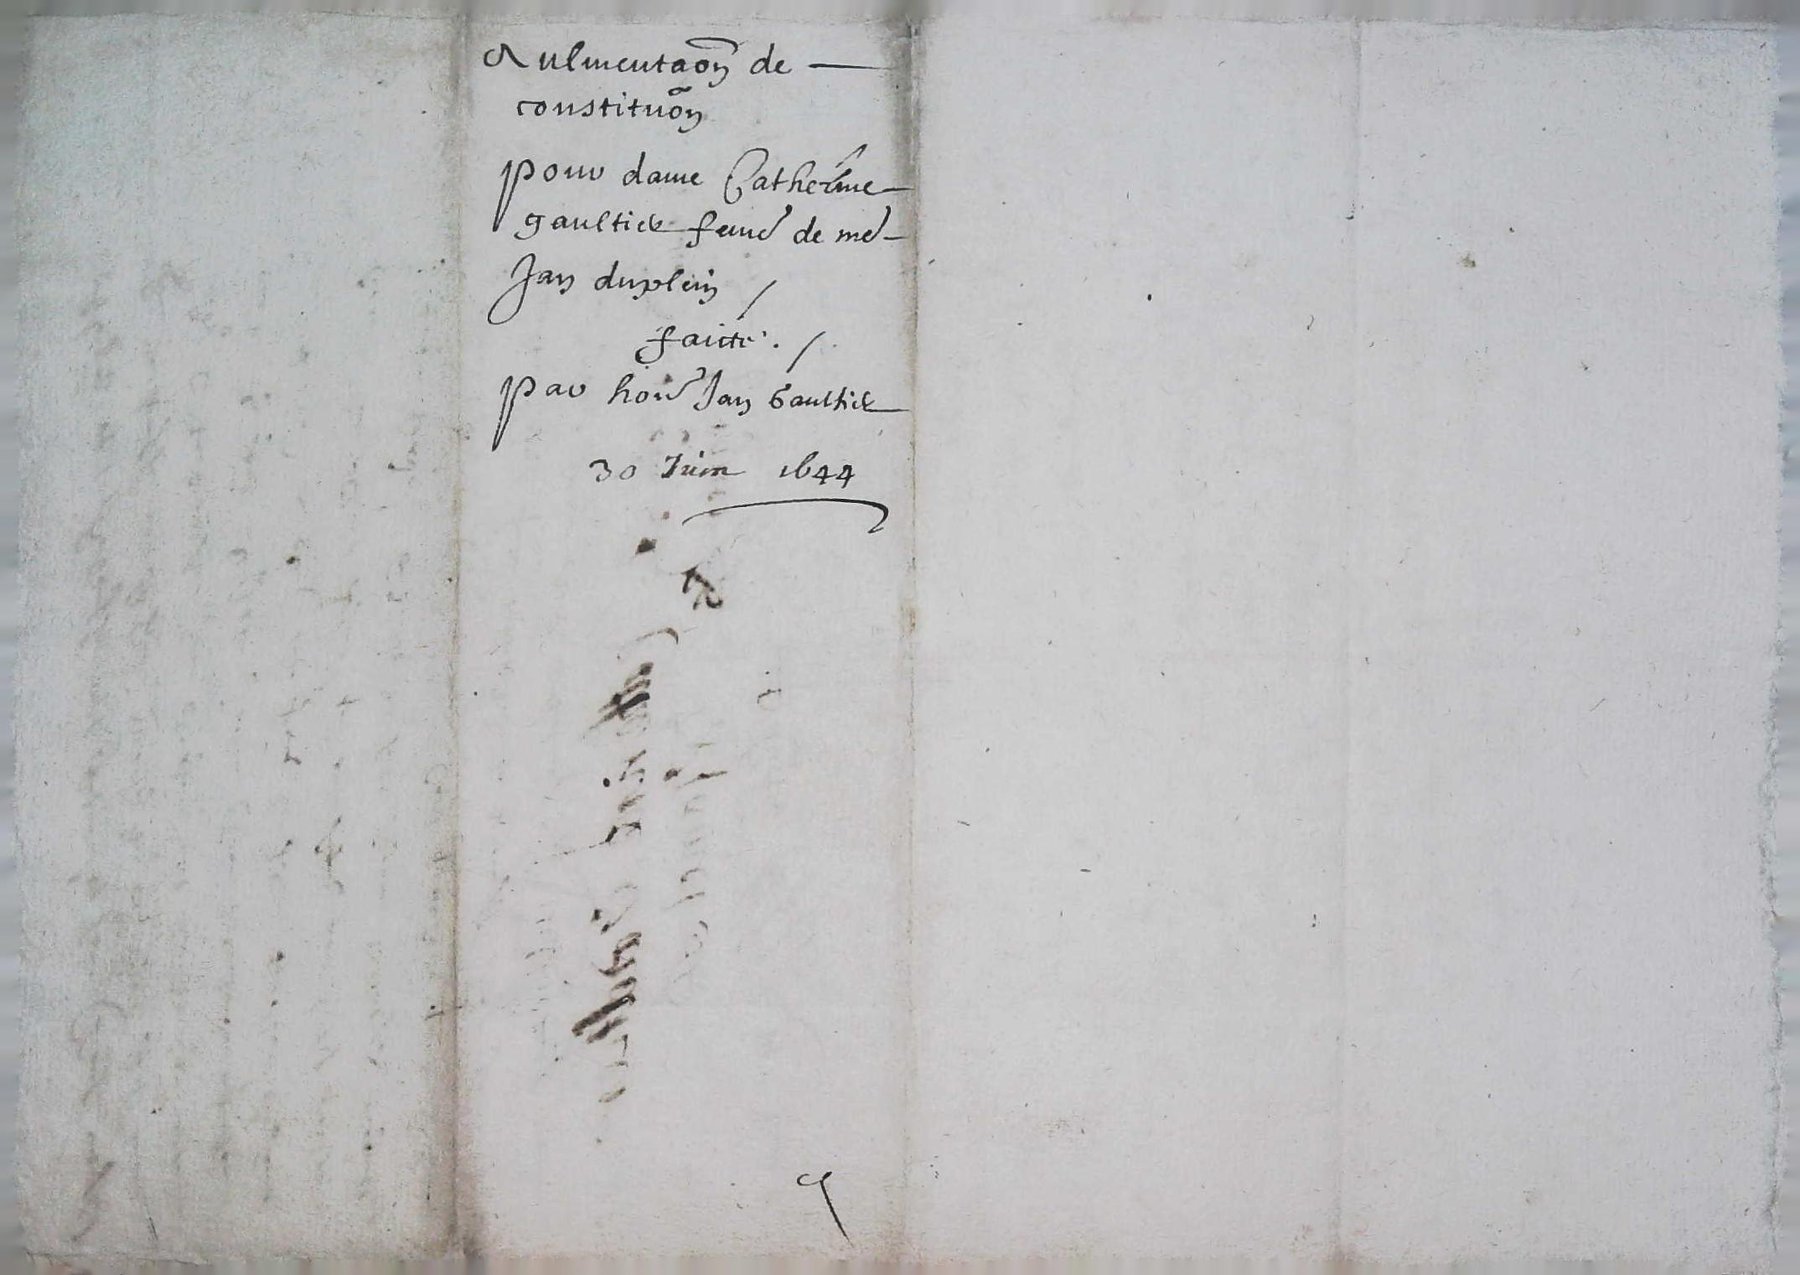 Aulmentaoñ de
constituoñ
pour dame Catherine
gaultier feme de me
Jan duplein /
faicte . /
par hon Jan Gaultier
30 Juin 1644